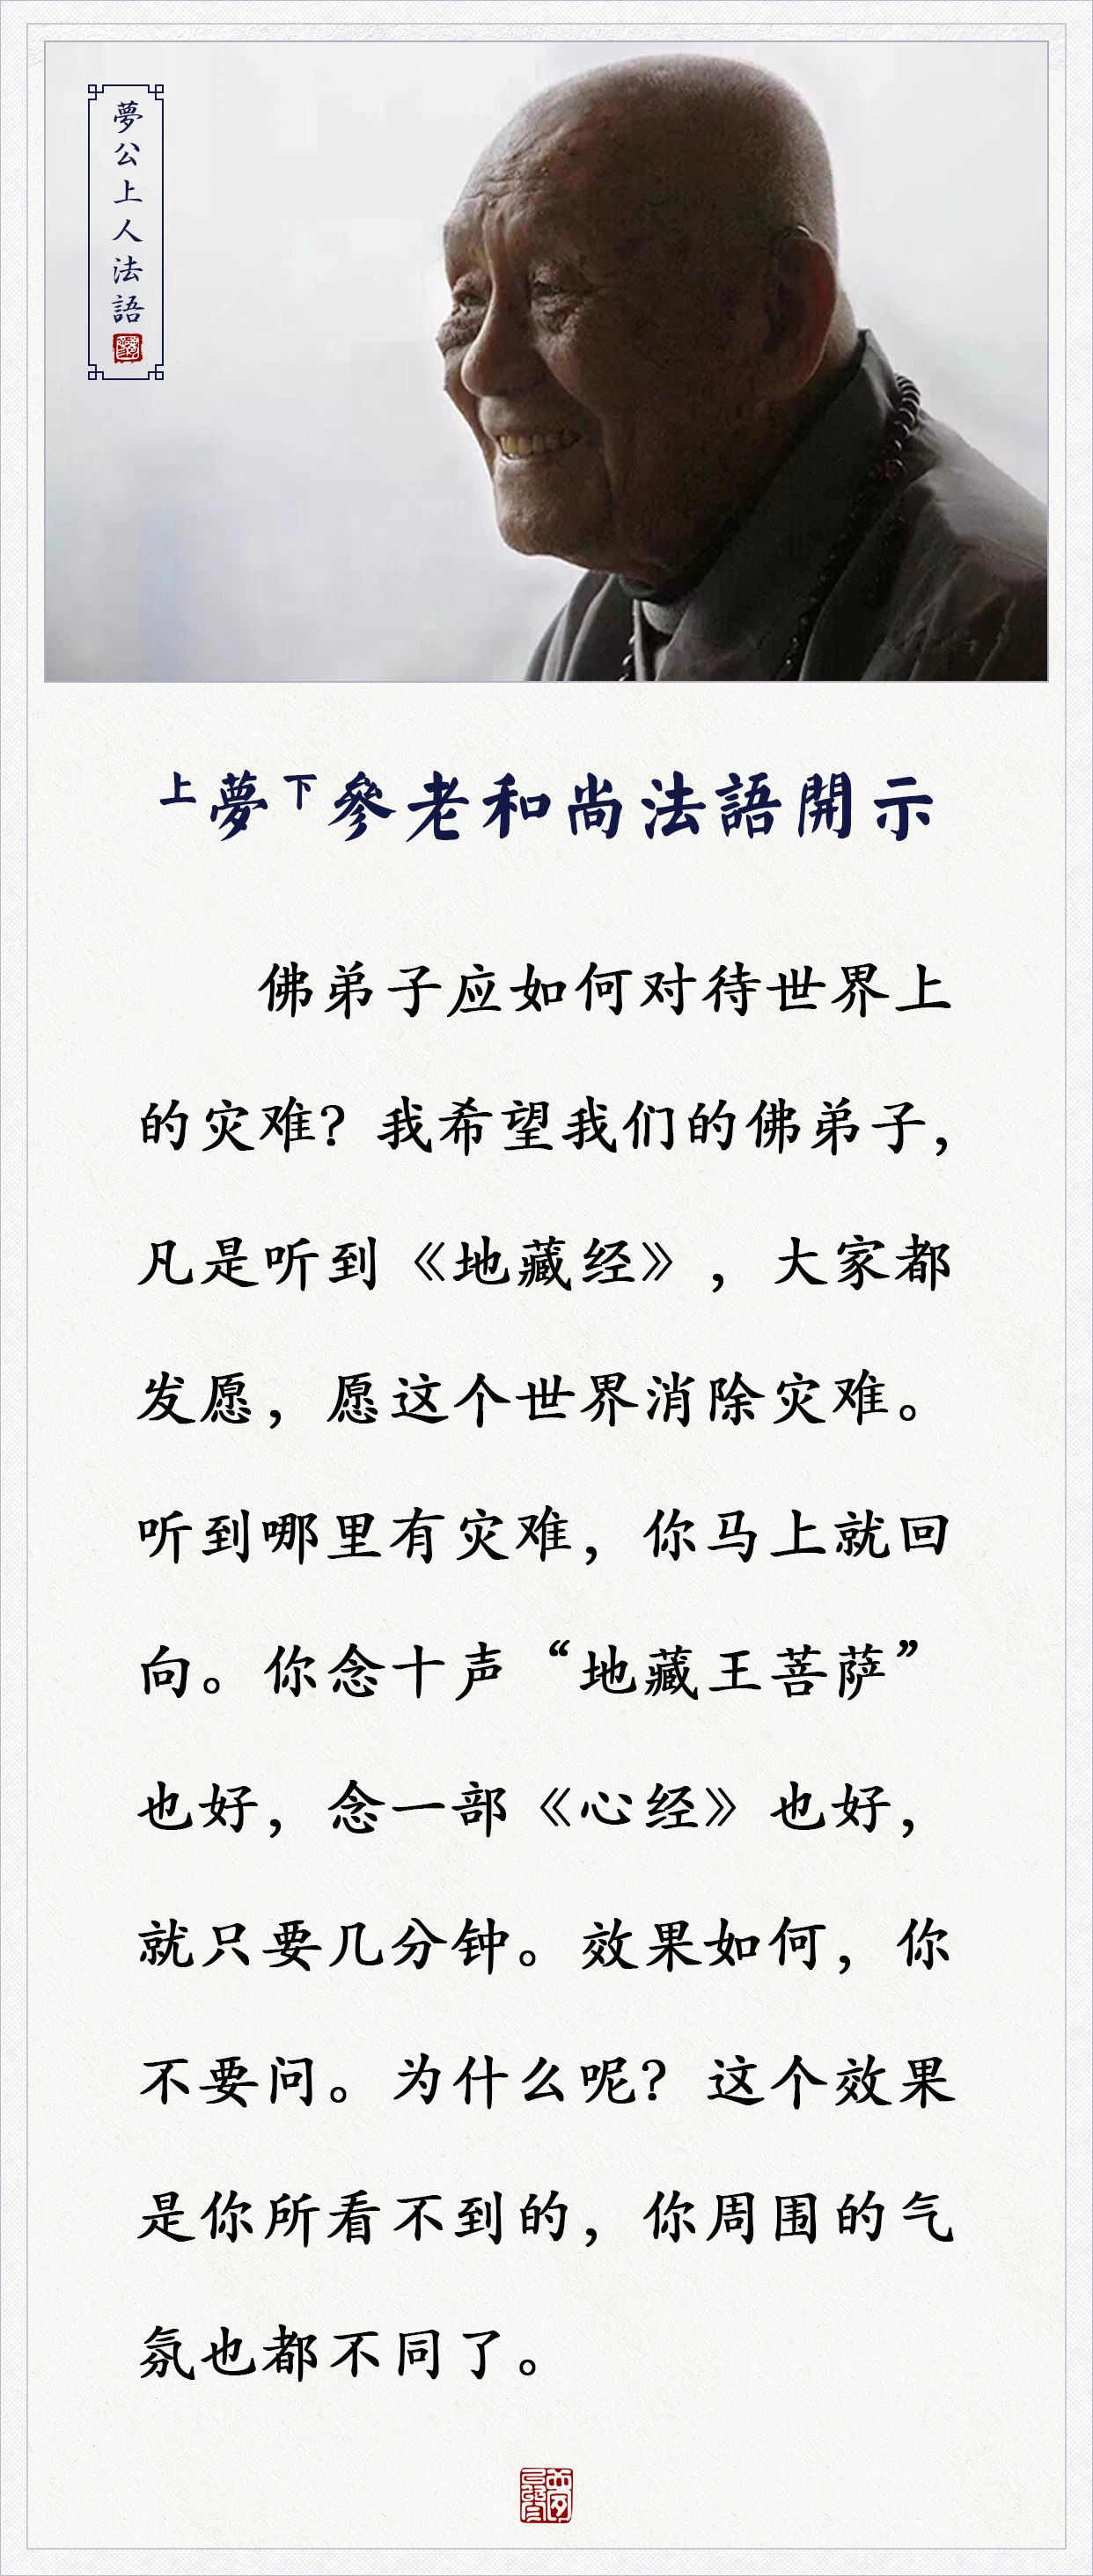 夢公上人法語
上夢下參老和尚法語開示
佛弟子应如何对待世界上
的灾难？我希望我们的佛弟子，
凡是听到《地藏经》，大家都
发愿，愿这个世界消除灾难。
听到哪里有灾难，你马上就回
向。你念十声“地藏王菩萨”
也好，念一部《心经》也好，
就只要几分钟。效果如何，你
不要问。为什么呢？这个效果
是你所看不到的，你周围的气
氛也都不同了。